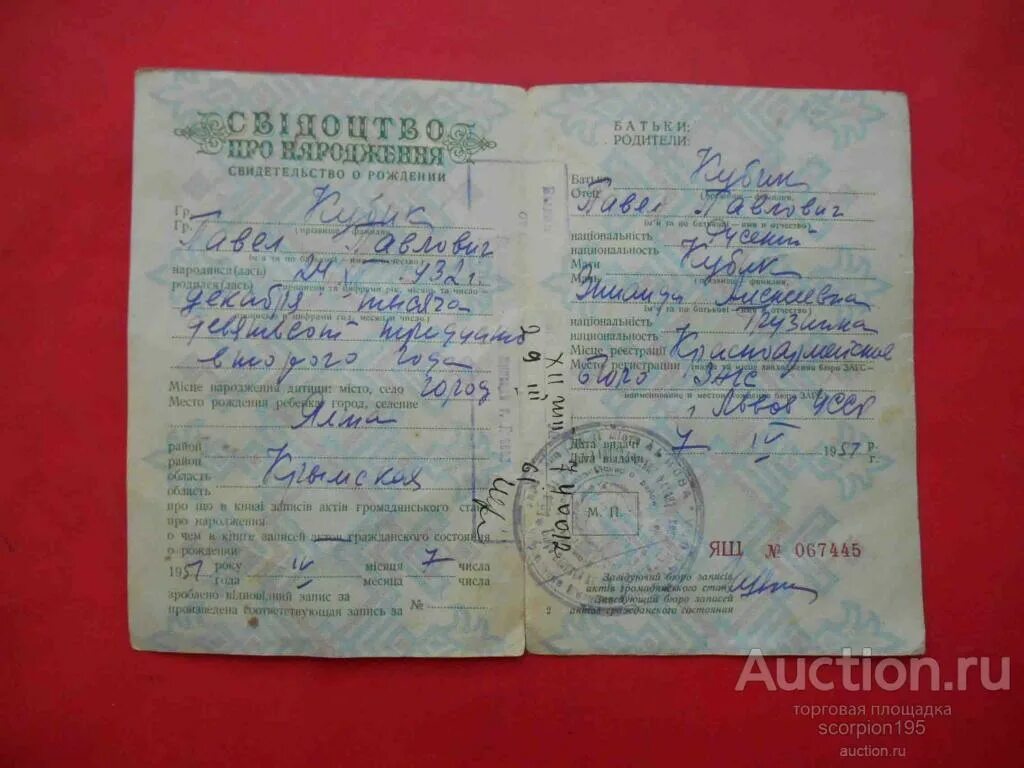 СВІДОЦТВО
ПРО НАРОДЖЕННЯ
СВИДЕТЕЛЬСТВО О РОЖДЕНИИ
Гр. Кубик
Гр. (прізвище фамилия)
Павел Павлович
(ім'я та по батькові — имя и отчество)
народився(лась) 24 1932 г.
родился(лась)
декабря тысяча
девятьсот тридцать
второго года
Місце народження дитини: місто, село город
Место рождения ребенка: город, селение
Ялта
район
район
область Крымская
область
про що в книзі записів актів громадянського стану
про народження
о чем в книге записей актов гражданского состояния
о рождении
1957 року IV місяця 7 числа
года IV месяца числа
зроблено відповідний запис за
произведена соответствующая запись за №
БАТЬКИ:
РОДИТЕЛИ:
Батько Кубик
Отец (прізвище фамилия)
Павел Павлович
(ім'я та по батькові — имя и отчество)
національність
национальность
Мати Кубик
Мать (прізвище фамилия)
Алексеевна
(ім'я та по батькові — имя и отчество)
національність Грузинка
национальность
Місце реєстрації Красноармейское
Место регистрации
бюро ЗАГС
г. Львов УССР
Дата видачі 7 IV 1957 р.
Дата выдачи г.
М. П.
ЯЩ № 067445
Завідуючий бюро записів
актів громадянського стану
Заведующий бюро записей
актов гражданского состояния
2
Auction.ru
торговая площадка
scorpion195
auction.ru